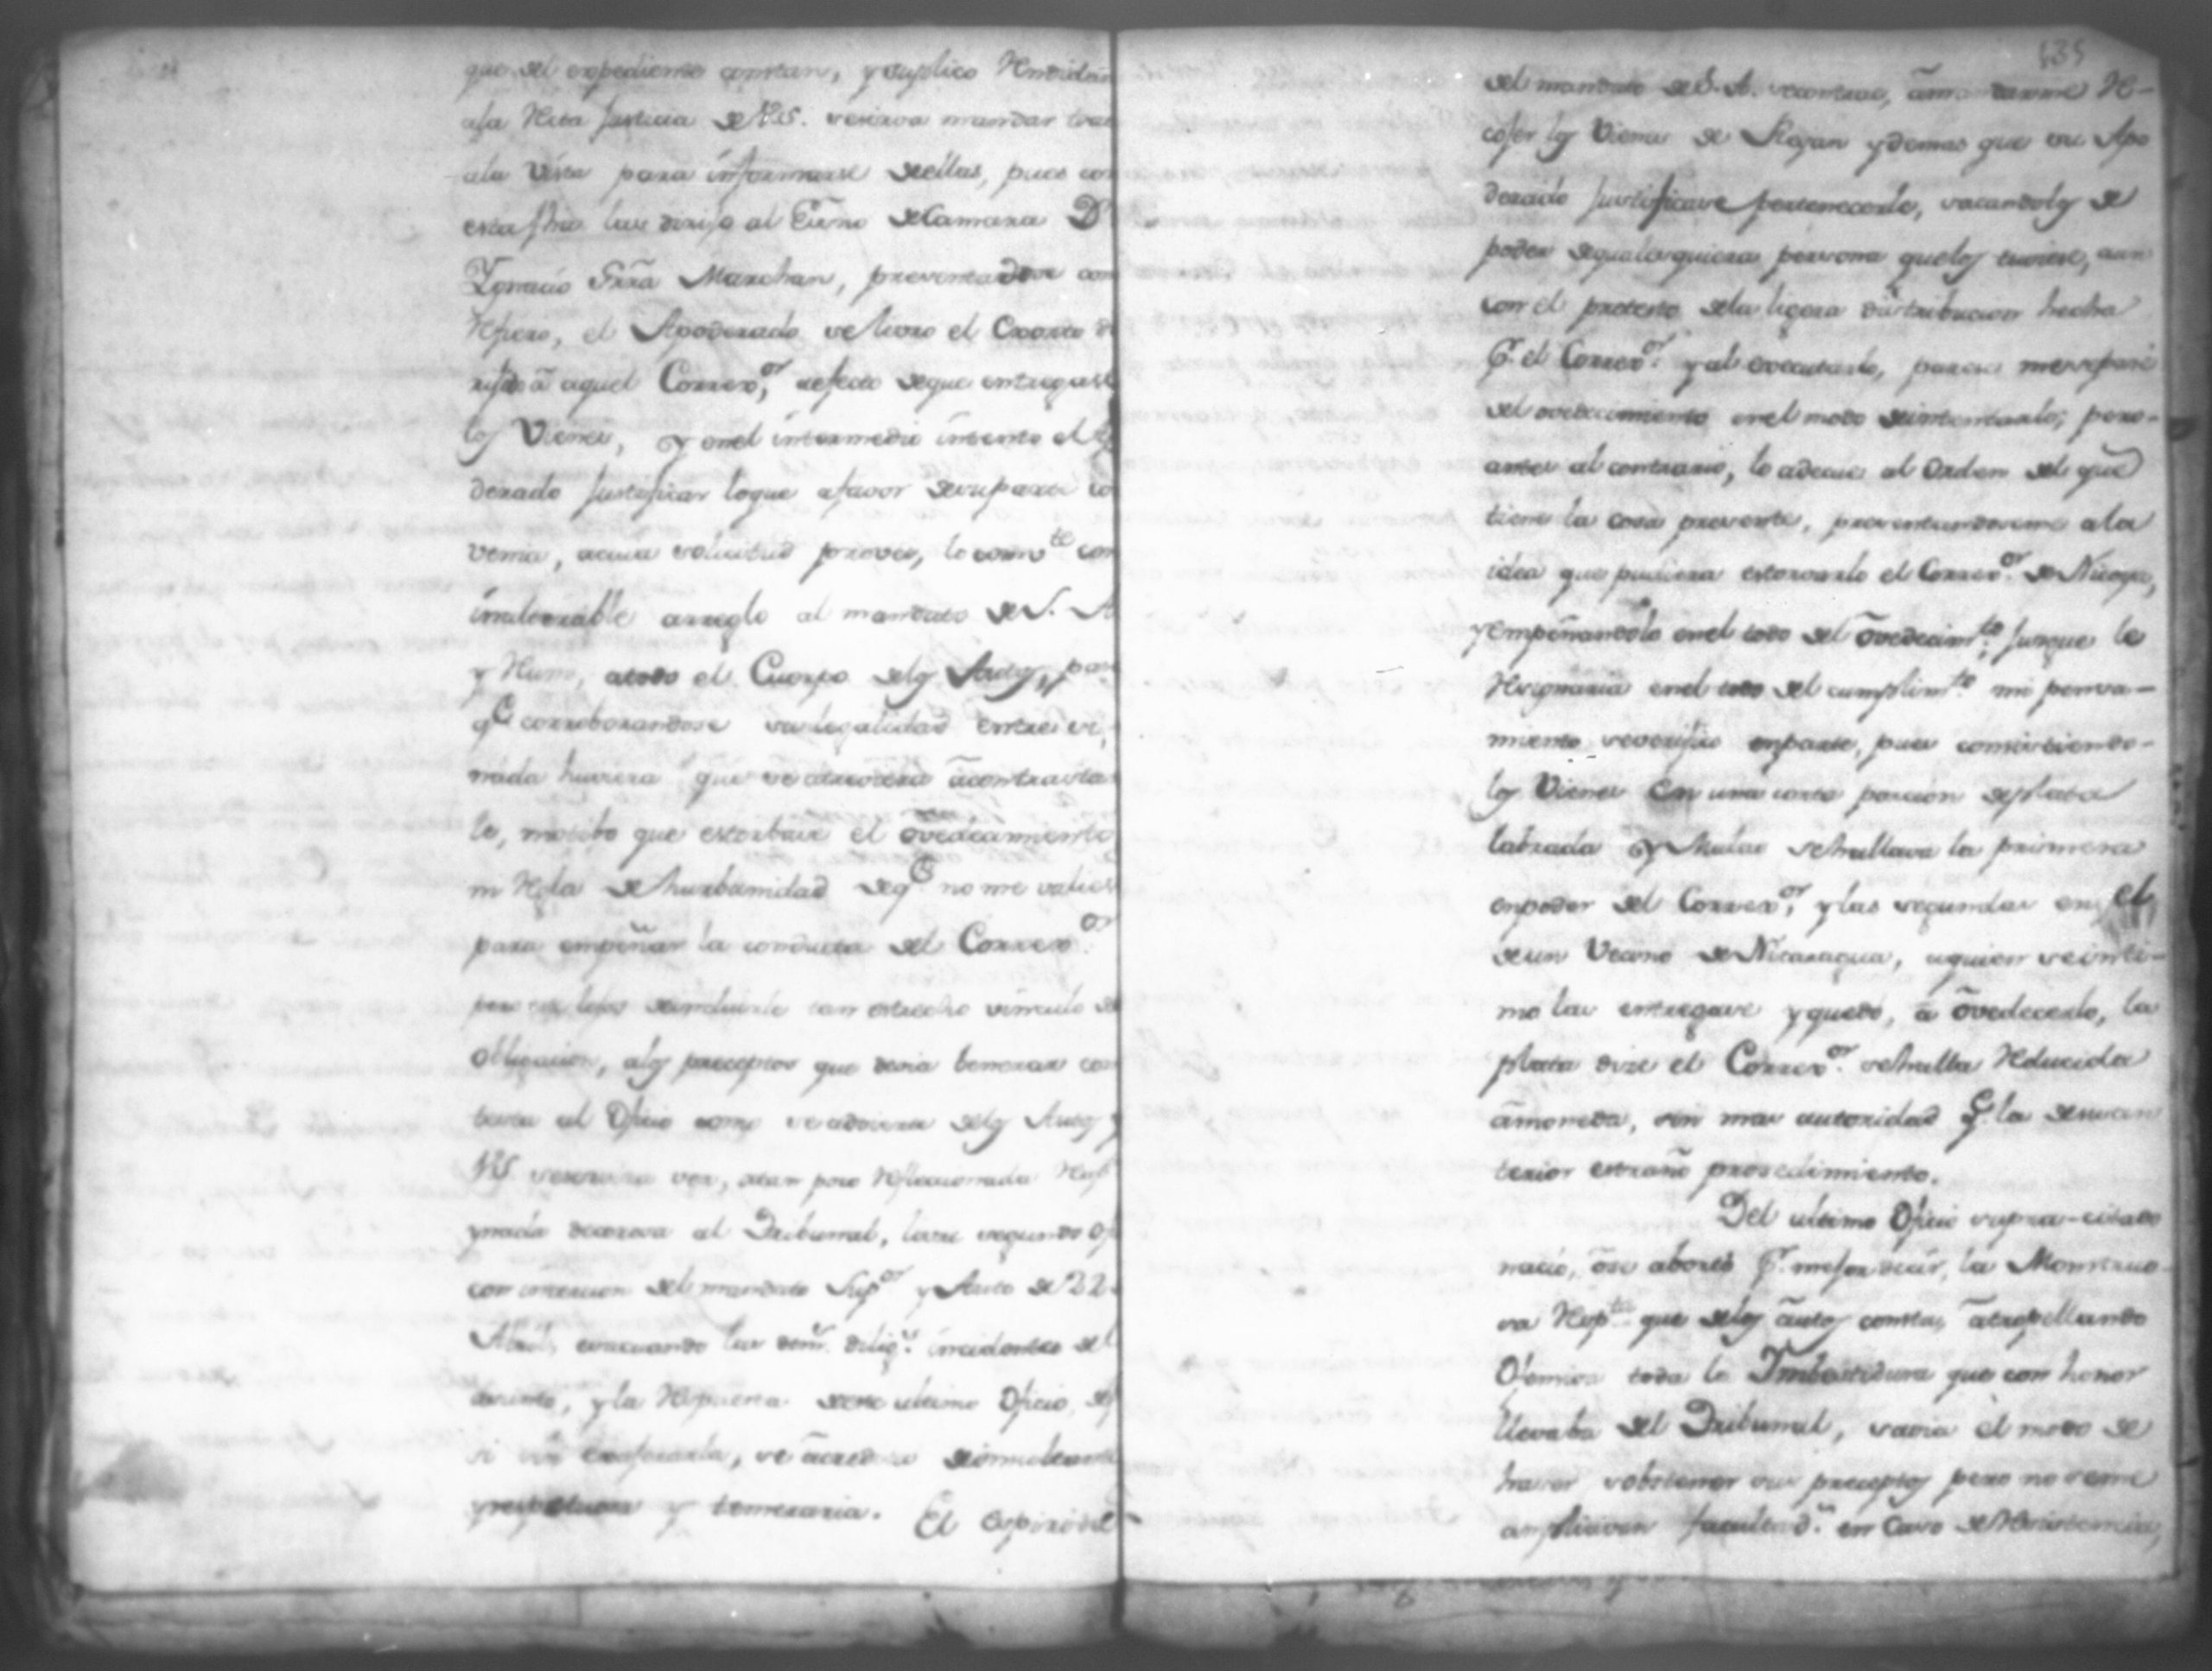 que del expediente constan, y suplico Rendidam
a la Recta Justicia de V.S. se sirva mandar traer
a la vista para informarse de ellas, pues con
esta fha las dirijo al Essno de Camara Dn
Ygnacio Grra Marchan, presentadose con
Refiero, el Apoderado se libro el Exorto di
rijido â aquel Correxor, aefecto de que entregase
los Vienes, y en el intermedio intento el Apo
derado Justificar loque afavor de su parte con
venia, acuia solicitud provei, lo combte con
inalterable arreglo al mandato de S. A
y Humo, atodo el Cuerpo de los Autos, para
qe corroborandose su legalidad entre si,
nada huviera que se atreviera âcontrastar
le, motibo que estorbase el ôvedecimiento
ni Regla de hurbanidad de qe no me valiese
para empeñar la conducta del Correxor
pero tan lejos de induirle tan estrecho vinculo de
Obligacion, a los preceptos que devia benerar con
texta al Oficio como se advierte de los Autos y
V.S. se servira ver, atan poco Reflecionada Resp
y nada decorosa al Tribunal, libre segundo Of
con incercion del mandato Supor y Auto de 22 d
Abril, evacuando las dems diligs incidentes del
asunto, y la Respuesta de este ultimo Oficio, de
si sin exajerarla, se âcredita de insultante
y temeraria. El Espiritu
135
del mandato de S. A. se contrae, â mandarme Re-
cojer los Vienes de Rojan y demas que su Apo
derado Justificase pertenecerle, sacandolos de
poder de qualesquiera persona que los tuviese, aun
con el pretesto de la ligera distribucion hecha
Pr. el Correxor. y al executarlo, parese me separe
del ovedecimiento en el modo de intentarlo; pero-
antes al contrario, lo adecue al Orden del que
tiene la cosa presente, presentandoseme ala
idea que pudiera estorvarlo el Correxor. de Nicoya,
y empeñandolo en el todo del ôvedecimto, Jusgue le
Resignaria en el todo del cumplimto mi pensa-
miento se verifico en parte, pues consistiendo-
los Vienes en una corta porcion de plata
labrada y Mulas se hallava la primera
en poder del Correxor, y las segundas en el
de un Vecino de Nicaragua, a quien se inti-
mo las entregase y quedó, â ôvedecerlo, la
plata dize el Correxor. se halla Reducida
âmoneda, sin mas autoridad qe. la de su an
terior estraño prosedimiento.
Del ultimo Oficio supra-citado
nació, ôse abortó Pr. mejor decir, la Monstruo-
sa Respta que de los âutos consta, âtropellando
Ofensiva toda la Imbestidura que con honor
llevaba del Tribunal, savia el modo de
hazer sobstener sus preceptos pero no seme
ampliavan facultads. en Caso de Resistencia,